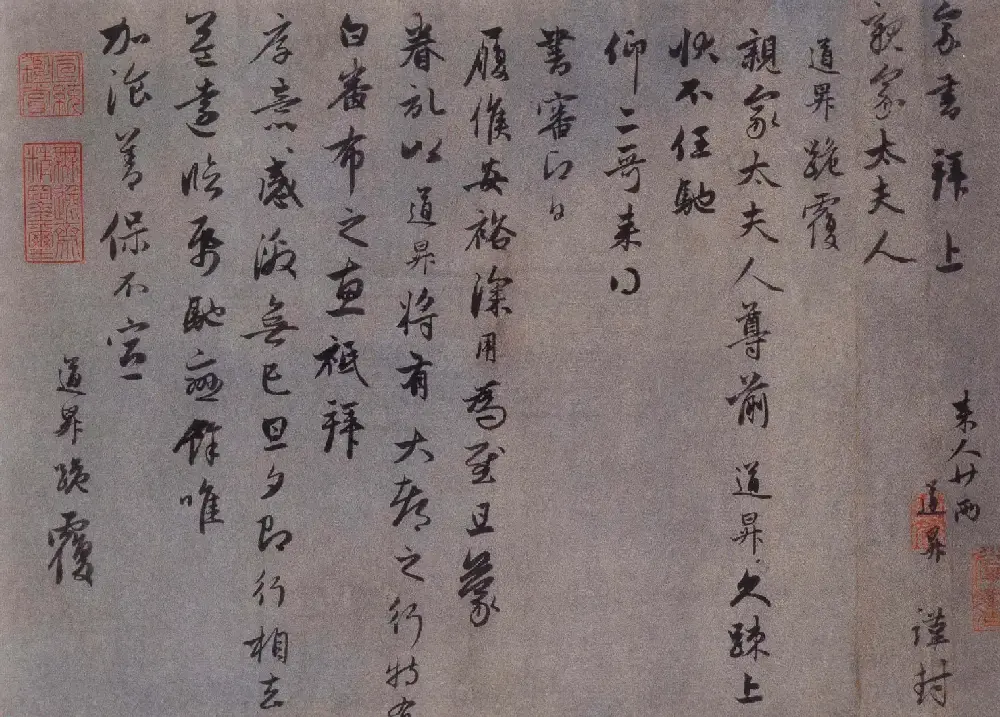 家書拜上
來人廿兩
親家太夫人
道昇 謹封
道昇跪覆
親家太夫人尊前 道昇久疎上
狀不任馳
仰二哥來得
書審即日
履候安裕深用為慰且蒙
眷記以道昇將有大都之行特有
白番布之惠祗拜
厚意感激無已旦夕即行相去
益遠臨紙馳戀餘唯
加飡善保不宣
道昇跪覆
宣統鑑賞
無逸齋精鑑璽